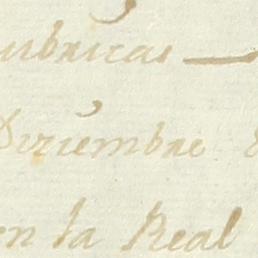 rubricas —
Diziembre
en la Real